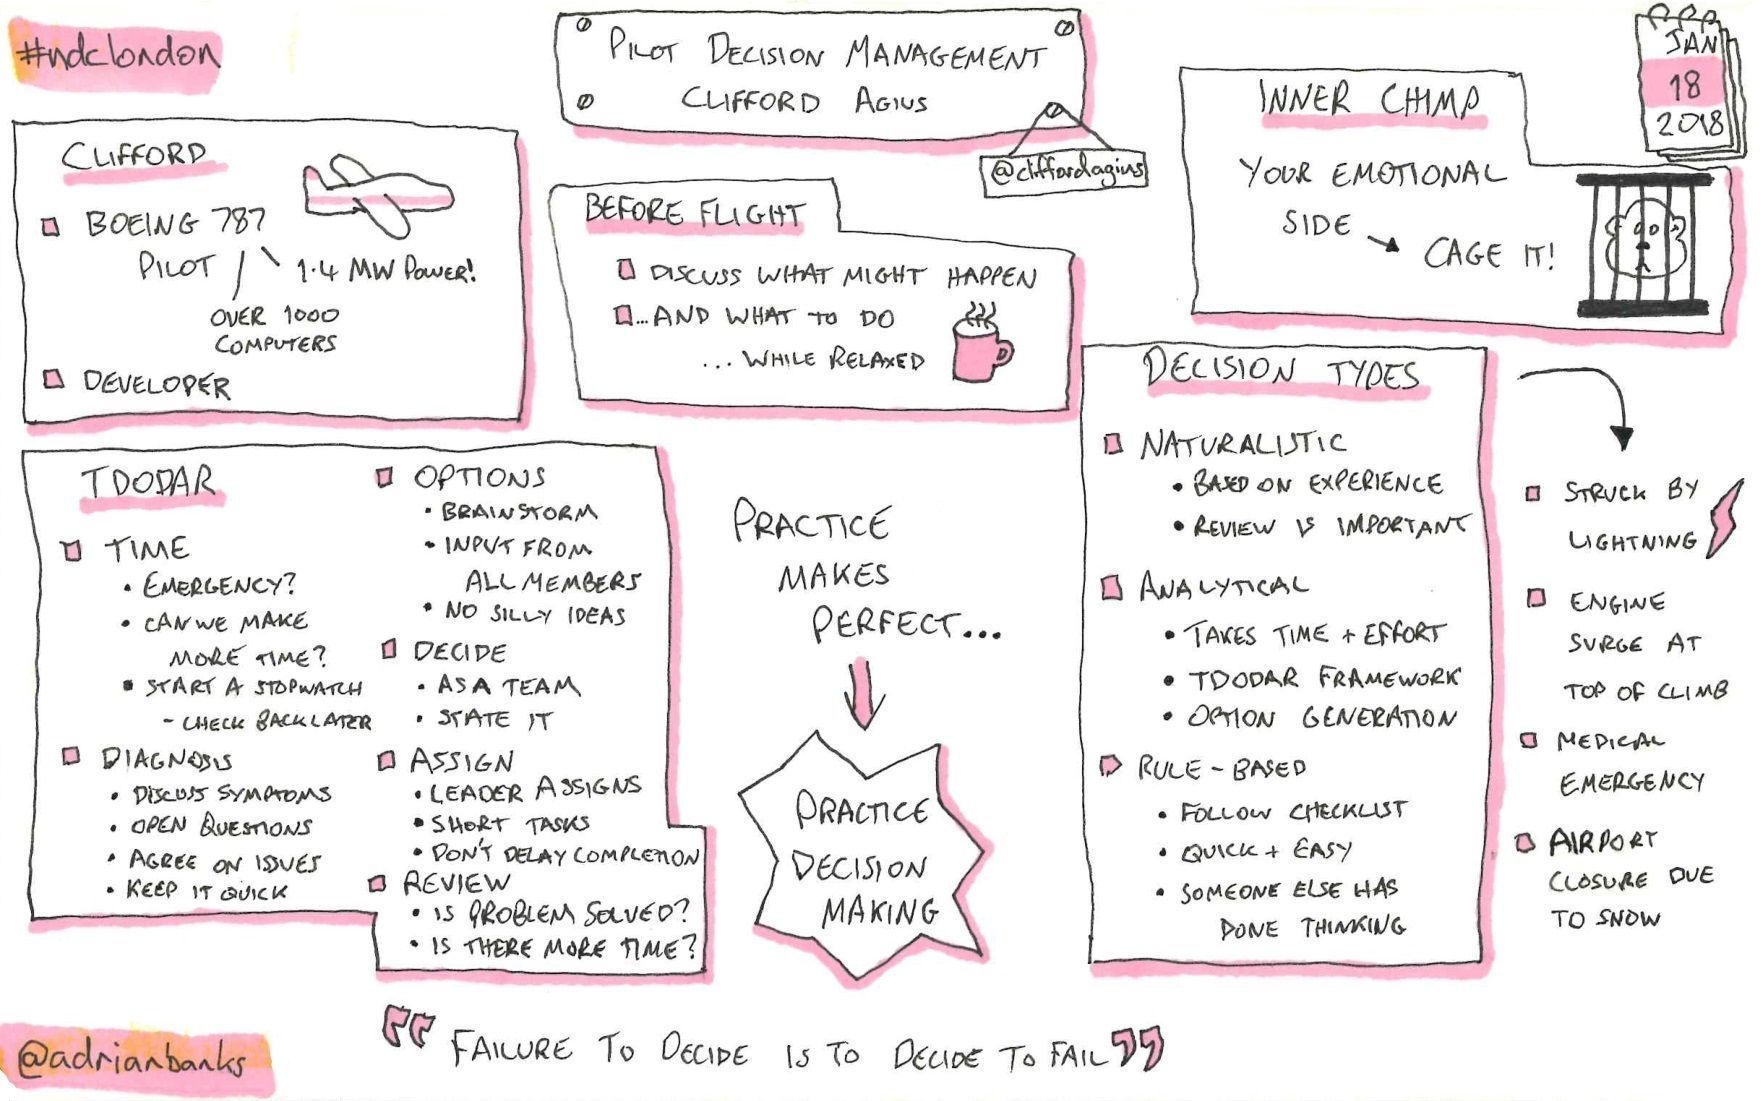 #ndclondon
PILOT DECISION MANAGEMENT
CLIFFORD AGIUS
@cliffordagius
JAN
18
2018
CLIFFORD
BOEING 787
PILOT
1.4 MW POWER!
OVER 1000
COMPUTERS
DEVELOPER
BEFORE FLIGHT
DISCUSS WHAT MIGHT HAPPEN
...AND WHAT TO DO
... WHILE RELAXED
INNER CHIMP
YOUR EMOTIONAL
SIDE
CAGE IT!
TDODAR
TIME
• EMERGENCY?
• CAN WE MAKE
MORE TIME?
• START A STOPWATCH
- CHECK BACK LATER
DIAGNOSIS
• DISCUSS SYMPTOMS
• OPEN QUESTIONS
• AGREE ON ISSUES
• KEEP IT QUICK
OPTIONS
• BRAINSTORM
• INPUT FROM
ALL MEMBERS
• NO SILLY IDEAS
DECIDE
• AS A TEAM
• STATE IT
ASSIGN
• LEADER ASSIGNS
• SHORT TASKS
• DON'T DELAY COMPLETION
REVIEW
• IS PROBLEM SOLVED?
• IS THERE MORE TIME?
PRACTICE
MAKES
PERFECT...
PRACTICE
DECISION
MAKING
DECISION TYPES
NATURALISTIC
• BASED ON EXPERIENCE
• REVIEW IS IMPORTANT
ANALYTICAL
• TAKES TIME + EFFORT
• TDODAR FRAMEWORK
• OPTION GENERATION
RULE-BASED
• FOLLOW CHECKLIST
• QUICK + EASY
• SOMEONE ELSE HAS
DONE THINKING
STRUCK BY
LIGHTNING
ENGINE
SURGE AT
TOP OF CLIMB
MEDICAL
EMERGENCY
AIRPORT
CLOSURE DUE
TO SNOW
"FAILURE TO DECIDE IS TO DECIDE TO FAIL"
@adrianbanks